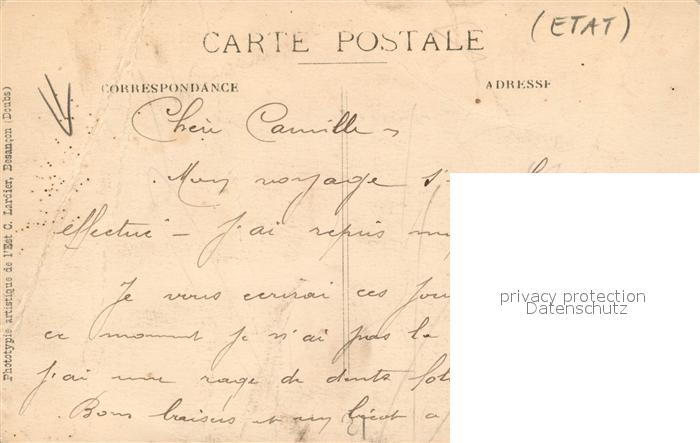 (ETAT)
CARTE POSTALE
CORRESPONDANCE
ADRESSE
Chère Camille
Mon voyage s'
effectué - J'ai repris
Je vous ecrirai ces jou
ce moment je n'ai pas le
J'ai une rage de dents
Bons baisers et un bécot a
Phototypie artistique de l'Est C. Lardier, Besançon (Doubs)
privacy protection
Datenschutz